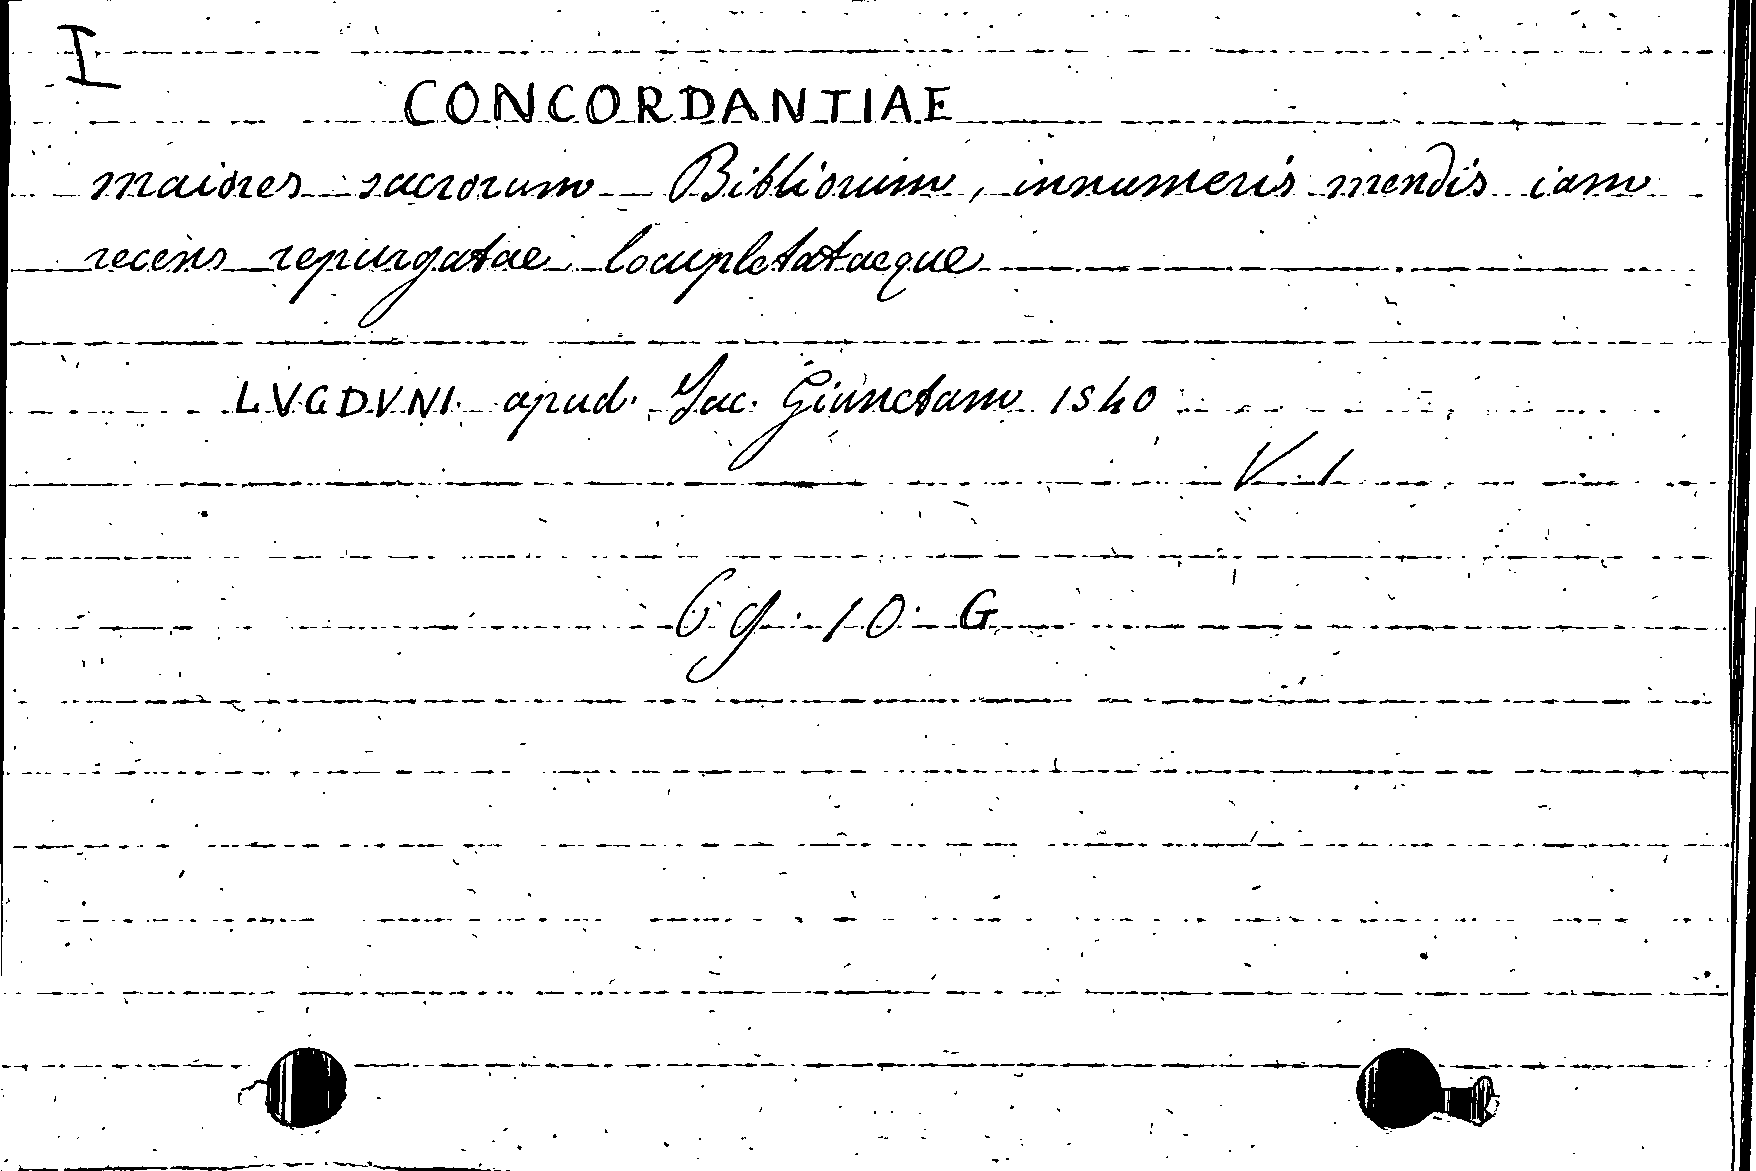 I
CONCORDANTIAE
maiores sacrorum Bibliorum, innumeris mendis iam
recens repurgatae locupletataeque
LVGDVNI apud. Jac. Giunctam 1540
V. 1
69. 10. G